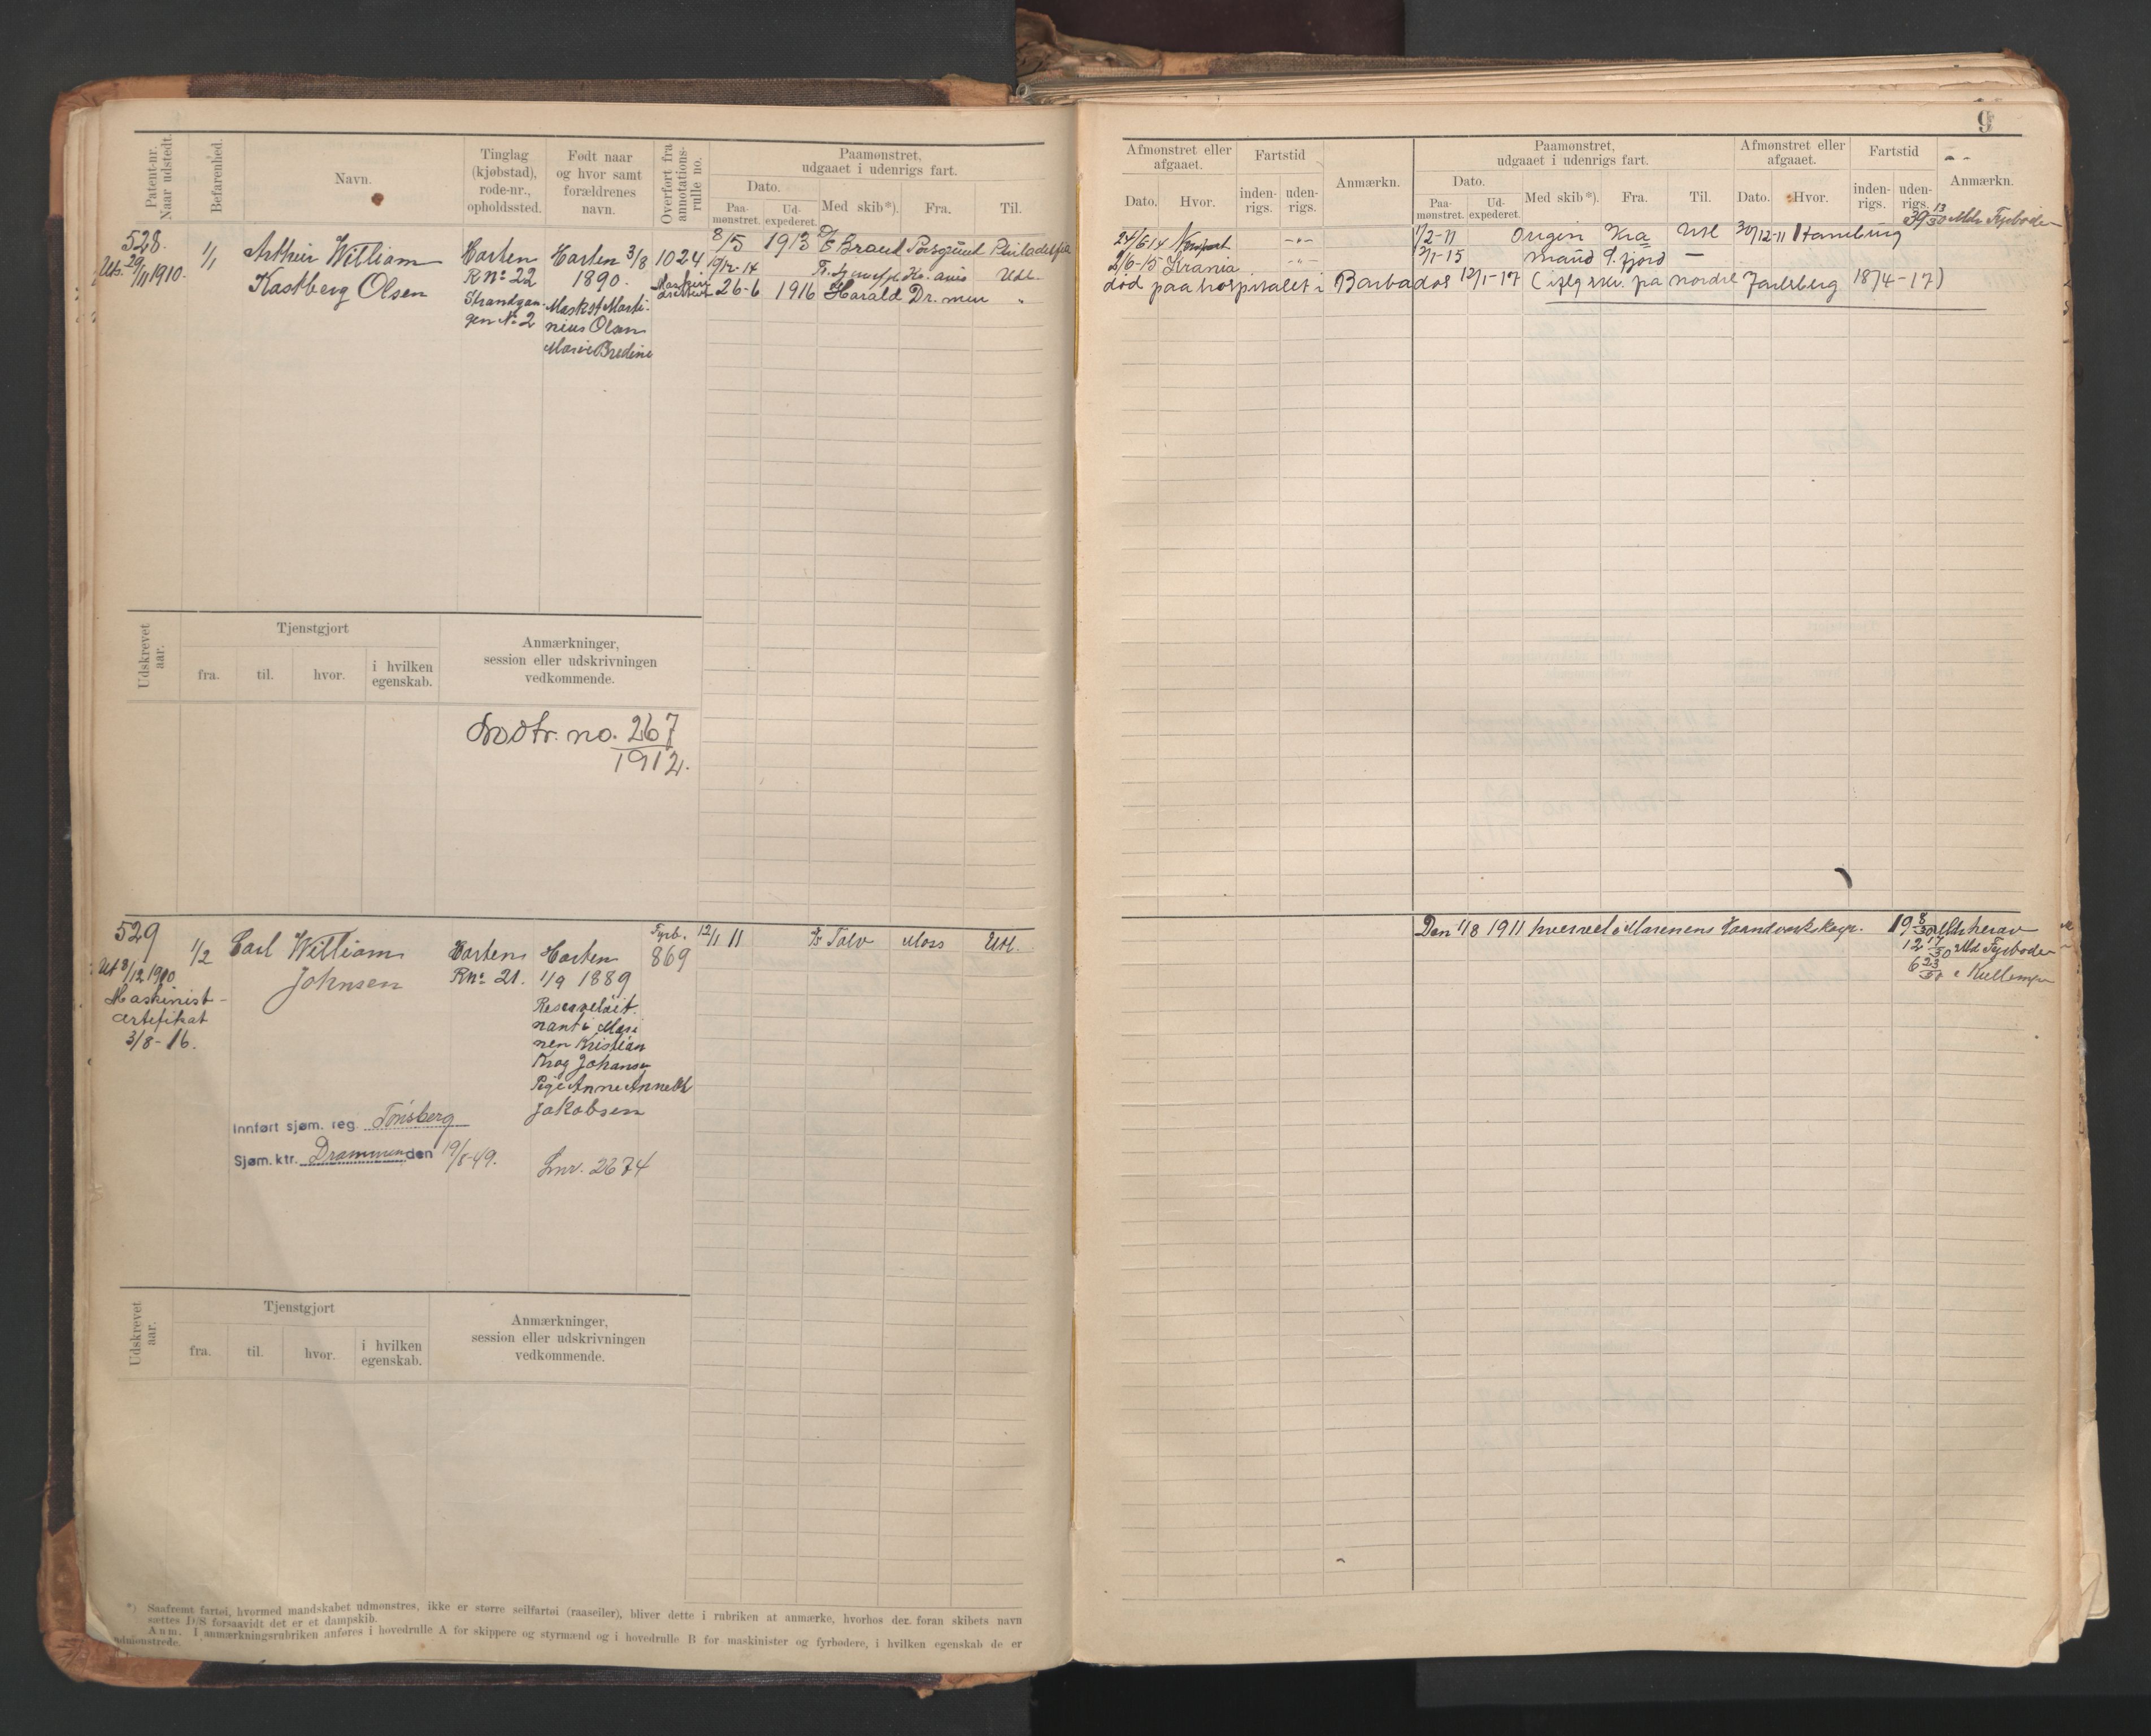 9
Patent-nr. Naar udstedt.
Befarenhed.
Navn.
Tinglag (kjøbstad), rode-nr., opholdssted.
Født naar og hvor samt forældrenes navn.
Overført fra annotations-rulle no.
Paamønstret, udgaaet i udenrigs fart.
Dato.
Paa-mønstret.
Ud-expederet.
Med skib*).
Fra.
Til.
Afmønstret eller afgaaet.
Dato.
Hvor.
Fartstid
inden-rigs.
uden-rigs.
Anmærkn.
Paamønstret, udgaaet i udenrigs fart.
Dato.
Paa-mønstret.
Ud-expederet.
Med skib*).
Fra.
Til.
Afmønstret eller afgaaet.
Dato.
Hvor.
Fartstid
inden-rigs.
uden-rigs.
Anmærkn.
528.
Uts. 29/11 1910.
1/1
Arthur William
Kastberg Olsen
Horten
R No 22
Strandgan-
gen No 2
Horten 3/8
1890.
Maskst Marti-
nius Olsen
Marie Bredine
1024
8/5 1913 Brand Porsgrund Philadelfia
19/12-14 Kr. aus Udl.
26-6 1916 Harald Dr. men "
24/6 14 Newport -"-
2/6-15 Krania -"-
død paa hospitalet i Barbados 12/1-17 (iflg skr. fra nordre Jarlsberg 18/4-17)
1/2-11 Origen Kra Utl 30/12-11 Hamburg
39 13/30 Mdr Fyrbøder
2/1-15 Maud S. fjord —
Udskrevet aar.
Tjenstgjort
fra.
til.
hvor.
i hvilken egenskab.
Anmærkninger, session eller udskrivningen vedkommende.
no. 267
1912.
529
Ut 8/12 1910
Maskinist-
certefikat
3/8-16.
1/2
Carl William
Johnsen
Horten
R No 21.
Horten
1/9 1889
Reserveløit-
nant i Mari
nen Kristian
Krog Johansen
Pige Anne Anneth
Jakobsen
Fyrb.
869
12/1 11 Talv Moss Utl.
Den 1/8 1911 hvervet i Marinens Haandverkskorps.
19 8/30 Mdr herav
12 17/30 Md Fyrbøder
6 23/30 " Kullemper
Innført sjøm. reg. Tønsberg
Sjøm. ktr. Drammen den 19/8-49.
Lnr. 2674
Udskrevet aar.
Tjenstgjort
fra.
til.
hvor.
i hvilken egenskab.
Anmærkninger, session eller udskrivningen vedkommende.
*) Saafremt fartøi, hvormed mandskabet udmønstres, ikke er større seilfartøi (raaseiler), bliver dette i rubriken at anmærke, hvorhos der foran skibets navn
sættes D/S forsaavidt det er et dampskib.
Anm. I anmærkningsrubriken anføres i hovedrulle A for skippere og styrmænd og i hovedrulle B for maskinister og fyrbødere, i hvilken egenskab de er
udmønstrede.